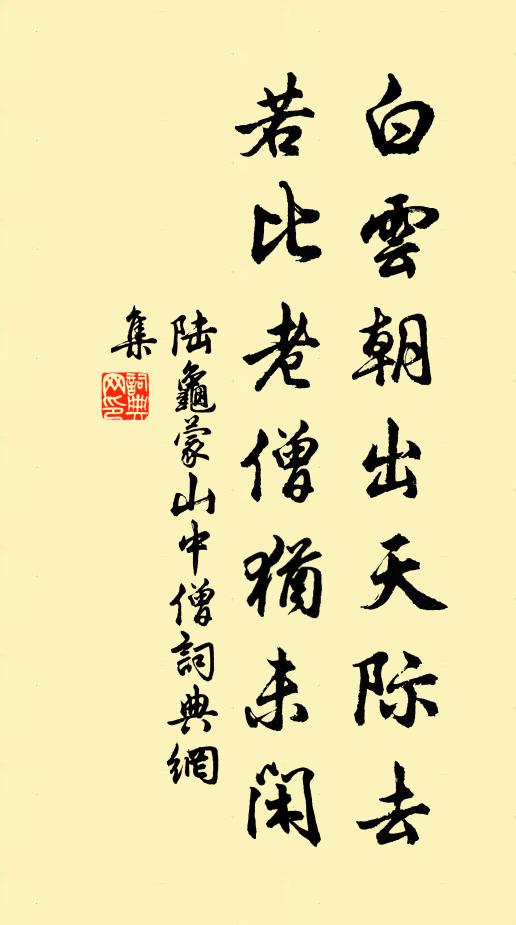 白雲朝出天际去
若比老僧猶未闲
陆龜蒙山中僧詞典網
集
詞典
网印